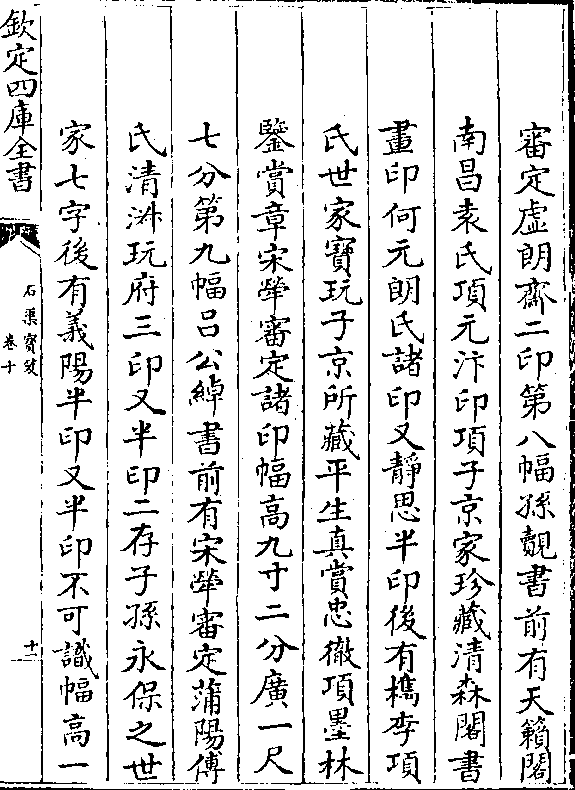 審定虛朗齋二印第八幅孫覿書前有天籟閣
南昌袁氏項元汴印項子京家珍藏清森閣書
畫印何元朗氏諸印又靜思半印後有檇李項
氏世家寶玩子京所藏平生真賞忠徹項墨林
鑒賞章宋犖審定諸印幅高九寸二分廣一尺
七分第九幅吕公綽書前有宋犖審定蒲陽傅
氏清㴍玩府三印又半印二存子孫永保之世
家七字後有義陽半印又半印不可識幅高一
欽定四庫全書
石渠寳笈
卷十
十一